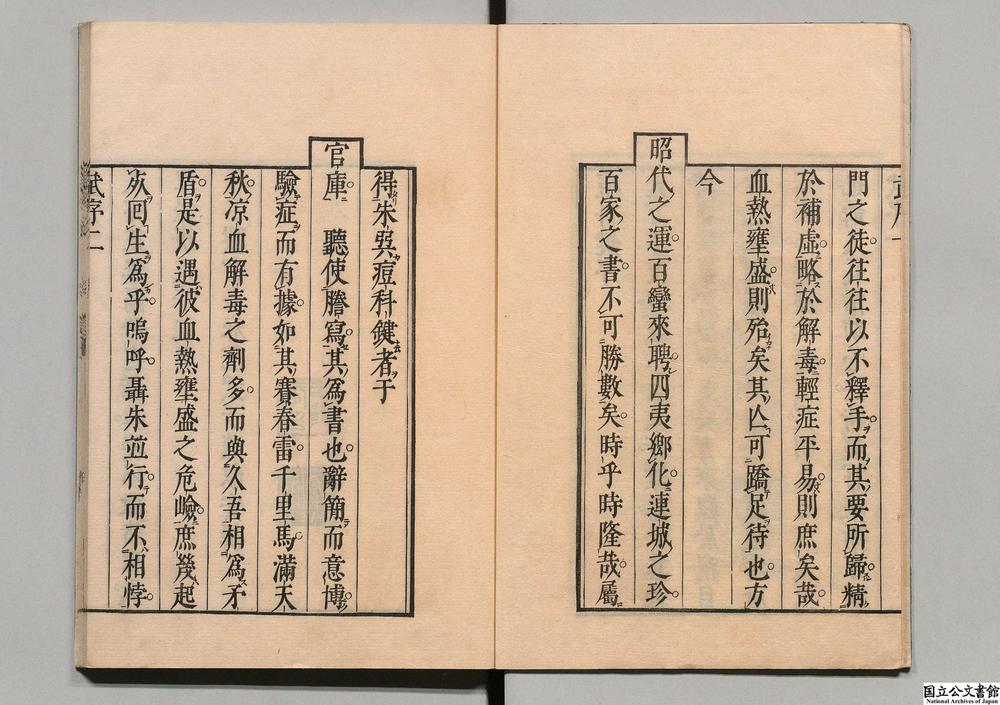 門之徒往往以不釋手而其要所歸精
於補虛略於解毒輕症平易則庶矣哉
血熱壅盛則殆矣其亾可蹻足待也方
今
昭代之運百蠻來聘四夷鄉化連城之珍
百家之書不可勝數矣時乎時隆哉屬
得朱巽痘科鍵者于
官庫 聽使謄寫其爲書也辭簡而意博
驗症而有據如其賽春雷千里馬滿天
秋凉血解毒之劑多而與久吾相爲矛
盾是以遇彼血熱壅盛之危嶮庶幾起
死回生爲乎嗚呼聶朱竝行而不相悖
武序二
国立公文書館
National Archives of Japan